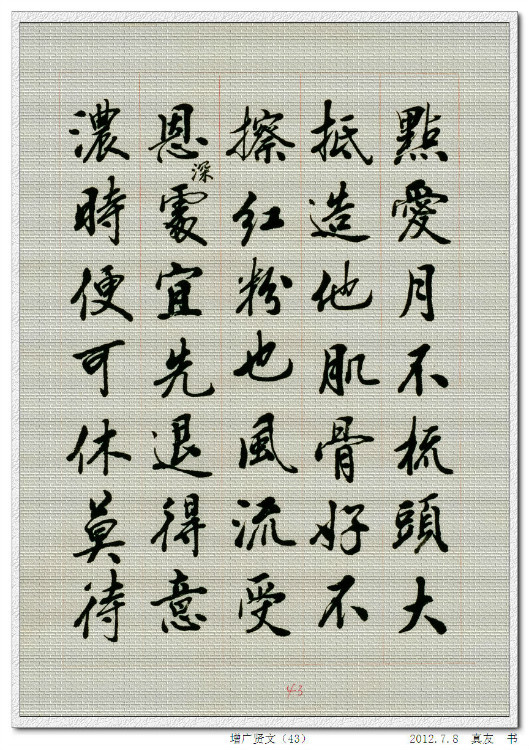 點愛月不梳頭大
抵造他肌骨好不
擦红粉也風流受
恩深處宜先退得意
濃時便可休莫待
43
增广贤文（43）
2012.7.8 真友 书